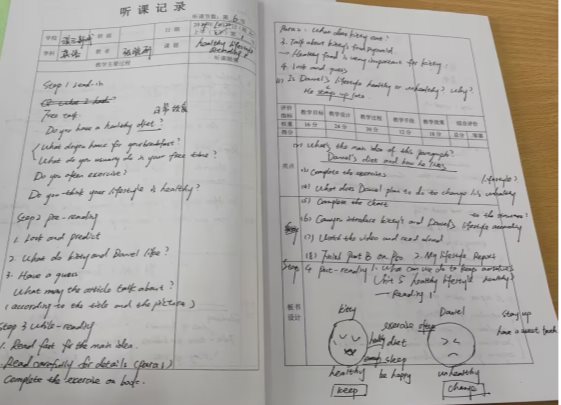 听课记录
学校
班级
日期
学科 英语
姓名
课题 healthy lifestyle
教学主要过程
听课随想
Step 1 Lead-in
Free talk:
Do you have a healthy diet?
What do you have for your breakfast?
What do you usually do in your free time?
Do you often exercise?
Do you think your lifestyle is healthy?
Step 2 Pre-reading
1. Look and predict
2. What do Kitty and Daniel like?
3. Have a guess
What may the article talk about?
(according to the title and the picture)
Step 3 While-reading
1. Read fast for the main idea.
Read carefully for details (Para 1)
Complete the exercise on book.
Para 2: What does Kitty eat?
3. Talk about Kitty's food pyramid
Healthy food is very important for Kitty
4. Look and guess
(1) Is Daniel's lifestyle healthy or unhealthy? Why?
He stays up late
评价指标 教学目标 教学设计 教学过程 教学手段 教学效果 综合评价
权重 16分 24分 30分 12分 18分 总分 等第
得分
(2) What's the main idea of this paragraph?
Daniel's diet and how he lives
(3) Complete the exercises
(4) What does Daniel plan to do to change his unhealthy lifestyle?
(5) Complete the chart
(6) Can you introduce Kitty's and Daniel's lifestyle according to the
(7) Watch the video and read aloud
(8) Finish Part B on P60 2. My lifestyle Report
Step 4 Post-reading 1. What can we do to keep ourselves healthy?
板书设计
Unit 5 healthy lifestyle
— Reading 1
Kitty
Daniel
exercise often
healthy diet
enough sleep
be happy
stay up
have a sweet tooth
healthy
unhealthy
keep
change